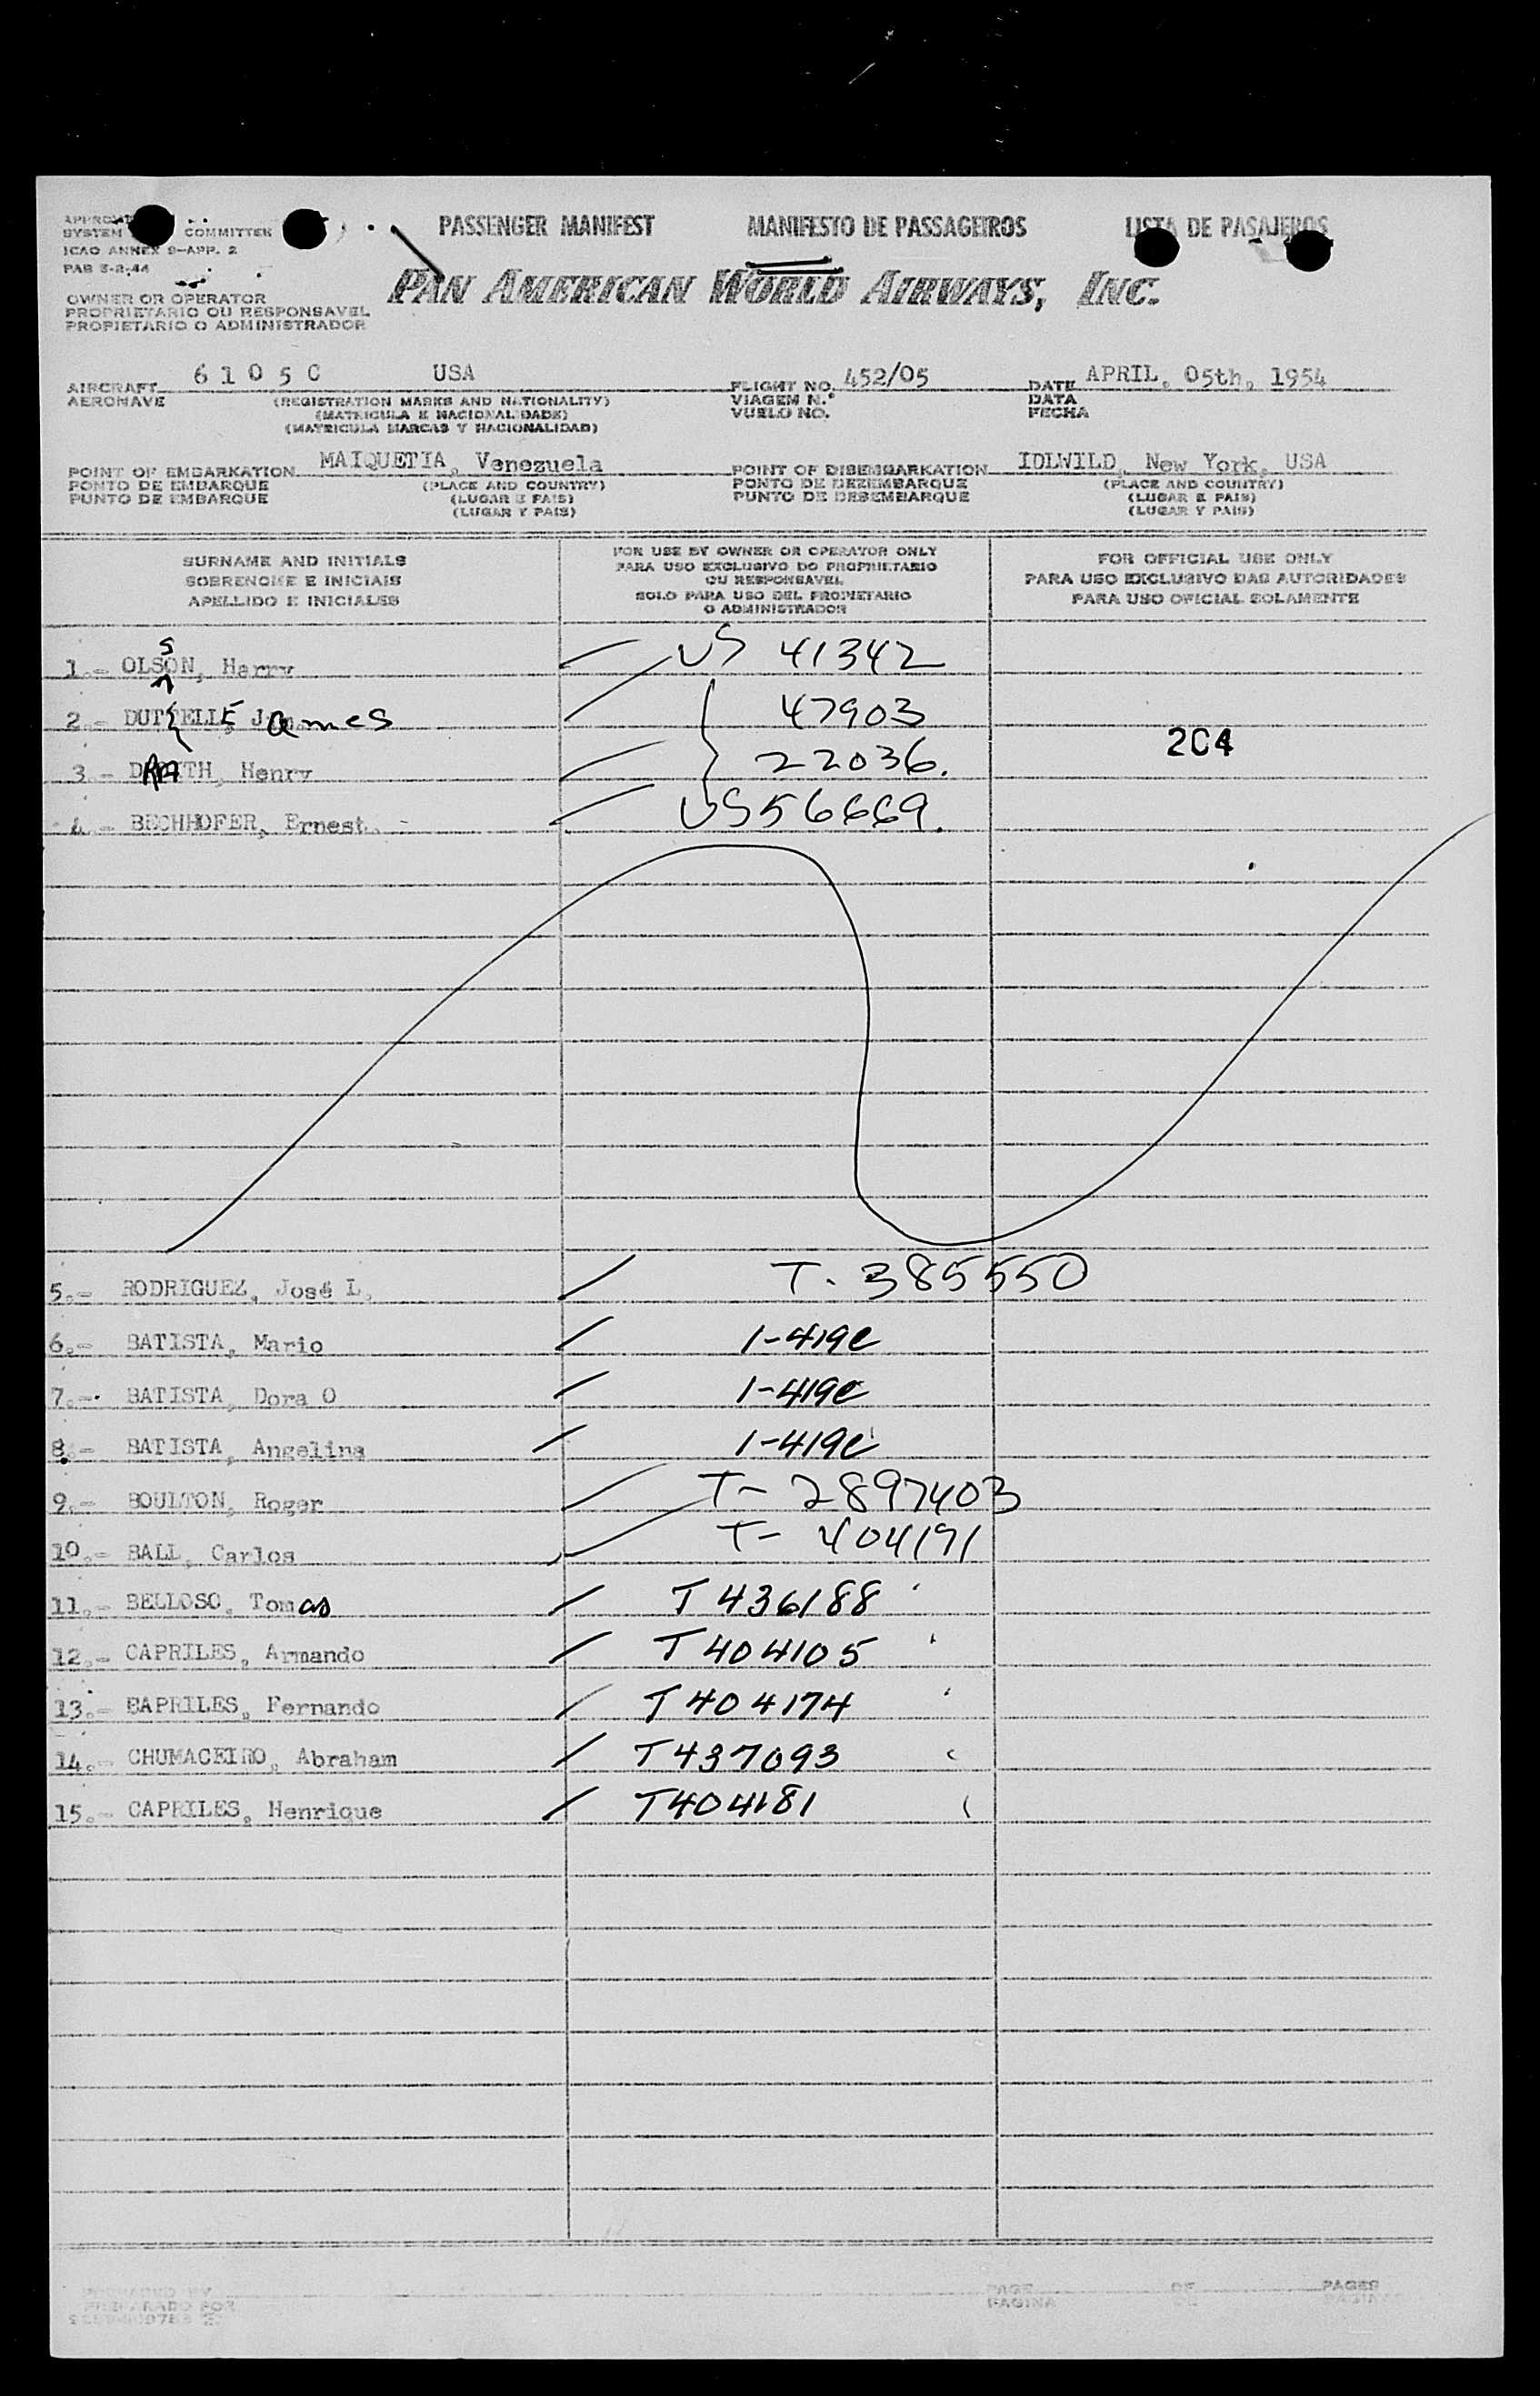 PASSENGER MANIFEST MANIFESTO DE PASSAGEIROS LISTA DE PASAJEROS
SYSTEM COMMITTEE
ICAO ANNEX 9-APP. 2
PAB 5-2-44
PAN AMERICAN WORLD AIRWAYS, INC.
OWNER OR OPERATOR
PROPRIETARIO OU RESPONSAVEL
PROPIETARIO O ADMINISTRADOR
AIRCRAFT 6 1 0 5 C USA FLIGHT NO. 452/05 DATE APRIL, 05th, 1954
AERONAVE (REGISTRATION MARKS AND NATIONALITY) VIAGEM N.º DATA
(MATRICULA E NACIONALIDADE) VUELO NO. FECHA
(MATRICULA MARCAS Y NACIONALIDAD)
POINT OF EMBARKATION MAIQUETIA, Venezuela POINT OF DISEMBARKATION IDLWILD, New York, USA
PONTO DE EMBARQUE (PLACE AND COUNTRY) PONTO DE DEZEMBARQUE (PLACE AND COUNTRY)
PUNTO DE EMBARQUE (LUGAR E PAIS) PUNTO DE DESEMBARQUE (LUGAR E PAIS)
(LUGAR Y PAIS) (LUGAR Y PAIS)
SURNAME AND INITIALS FOR USE BY OWNER OR OPERATOR ONLY FOR OFFICIAL USE ONLY
SOBRENOME E INICIAIS PARA USO EXCLUSIVO DO PROPRIETARIO PARA USO EXCLUSIVO DAS AUTORIDADES
APELLIDO E INICIALES OU RESPONSAVEL PARA USO OFICIAL SOLAMENTE
SOLO PARA USO DEL PROPIETARIO
O ADMINISTRADOR
s
1.- OLSON, Harry US 41342
2.- ames 47903
204
3.- Henry 22036.
4.- BECHHOFER, Ernest.- US56669.
5.- RODRIGUEZ, José L. T- 385550
6.- BATISTA, Mario 1-419c
7.- BATISTA, Dora O 1-419c
8.- BATISTA, Angelina 1-419c
9.- BOULTON, Roger T- 2897403
10.- BALL, Carlos T- 404191
11.- BELLOSO, Tomas T 436188
12.- CAPRILES, Armando T 404105
13.- CAPRILES, Fernando T 404174
14.- CHUMACEIRO, Abraham T437093
15.- CAPRILES, Henrique T404181
PAGE OF PAGES
PAGINA